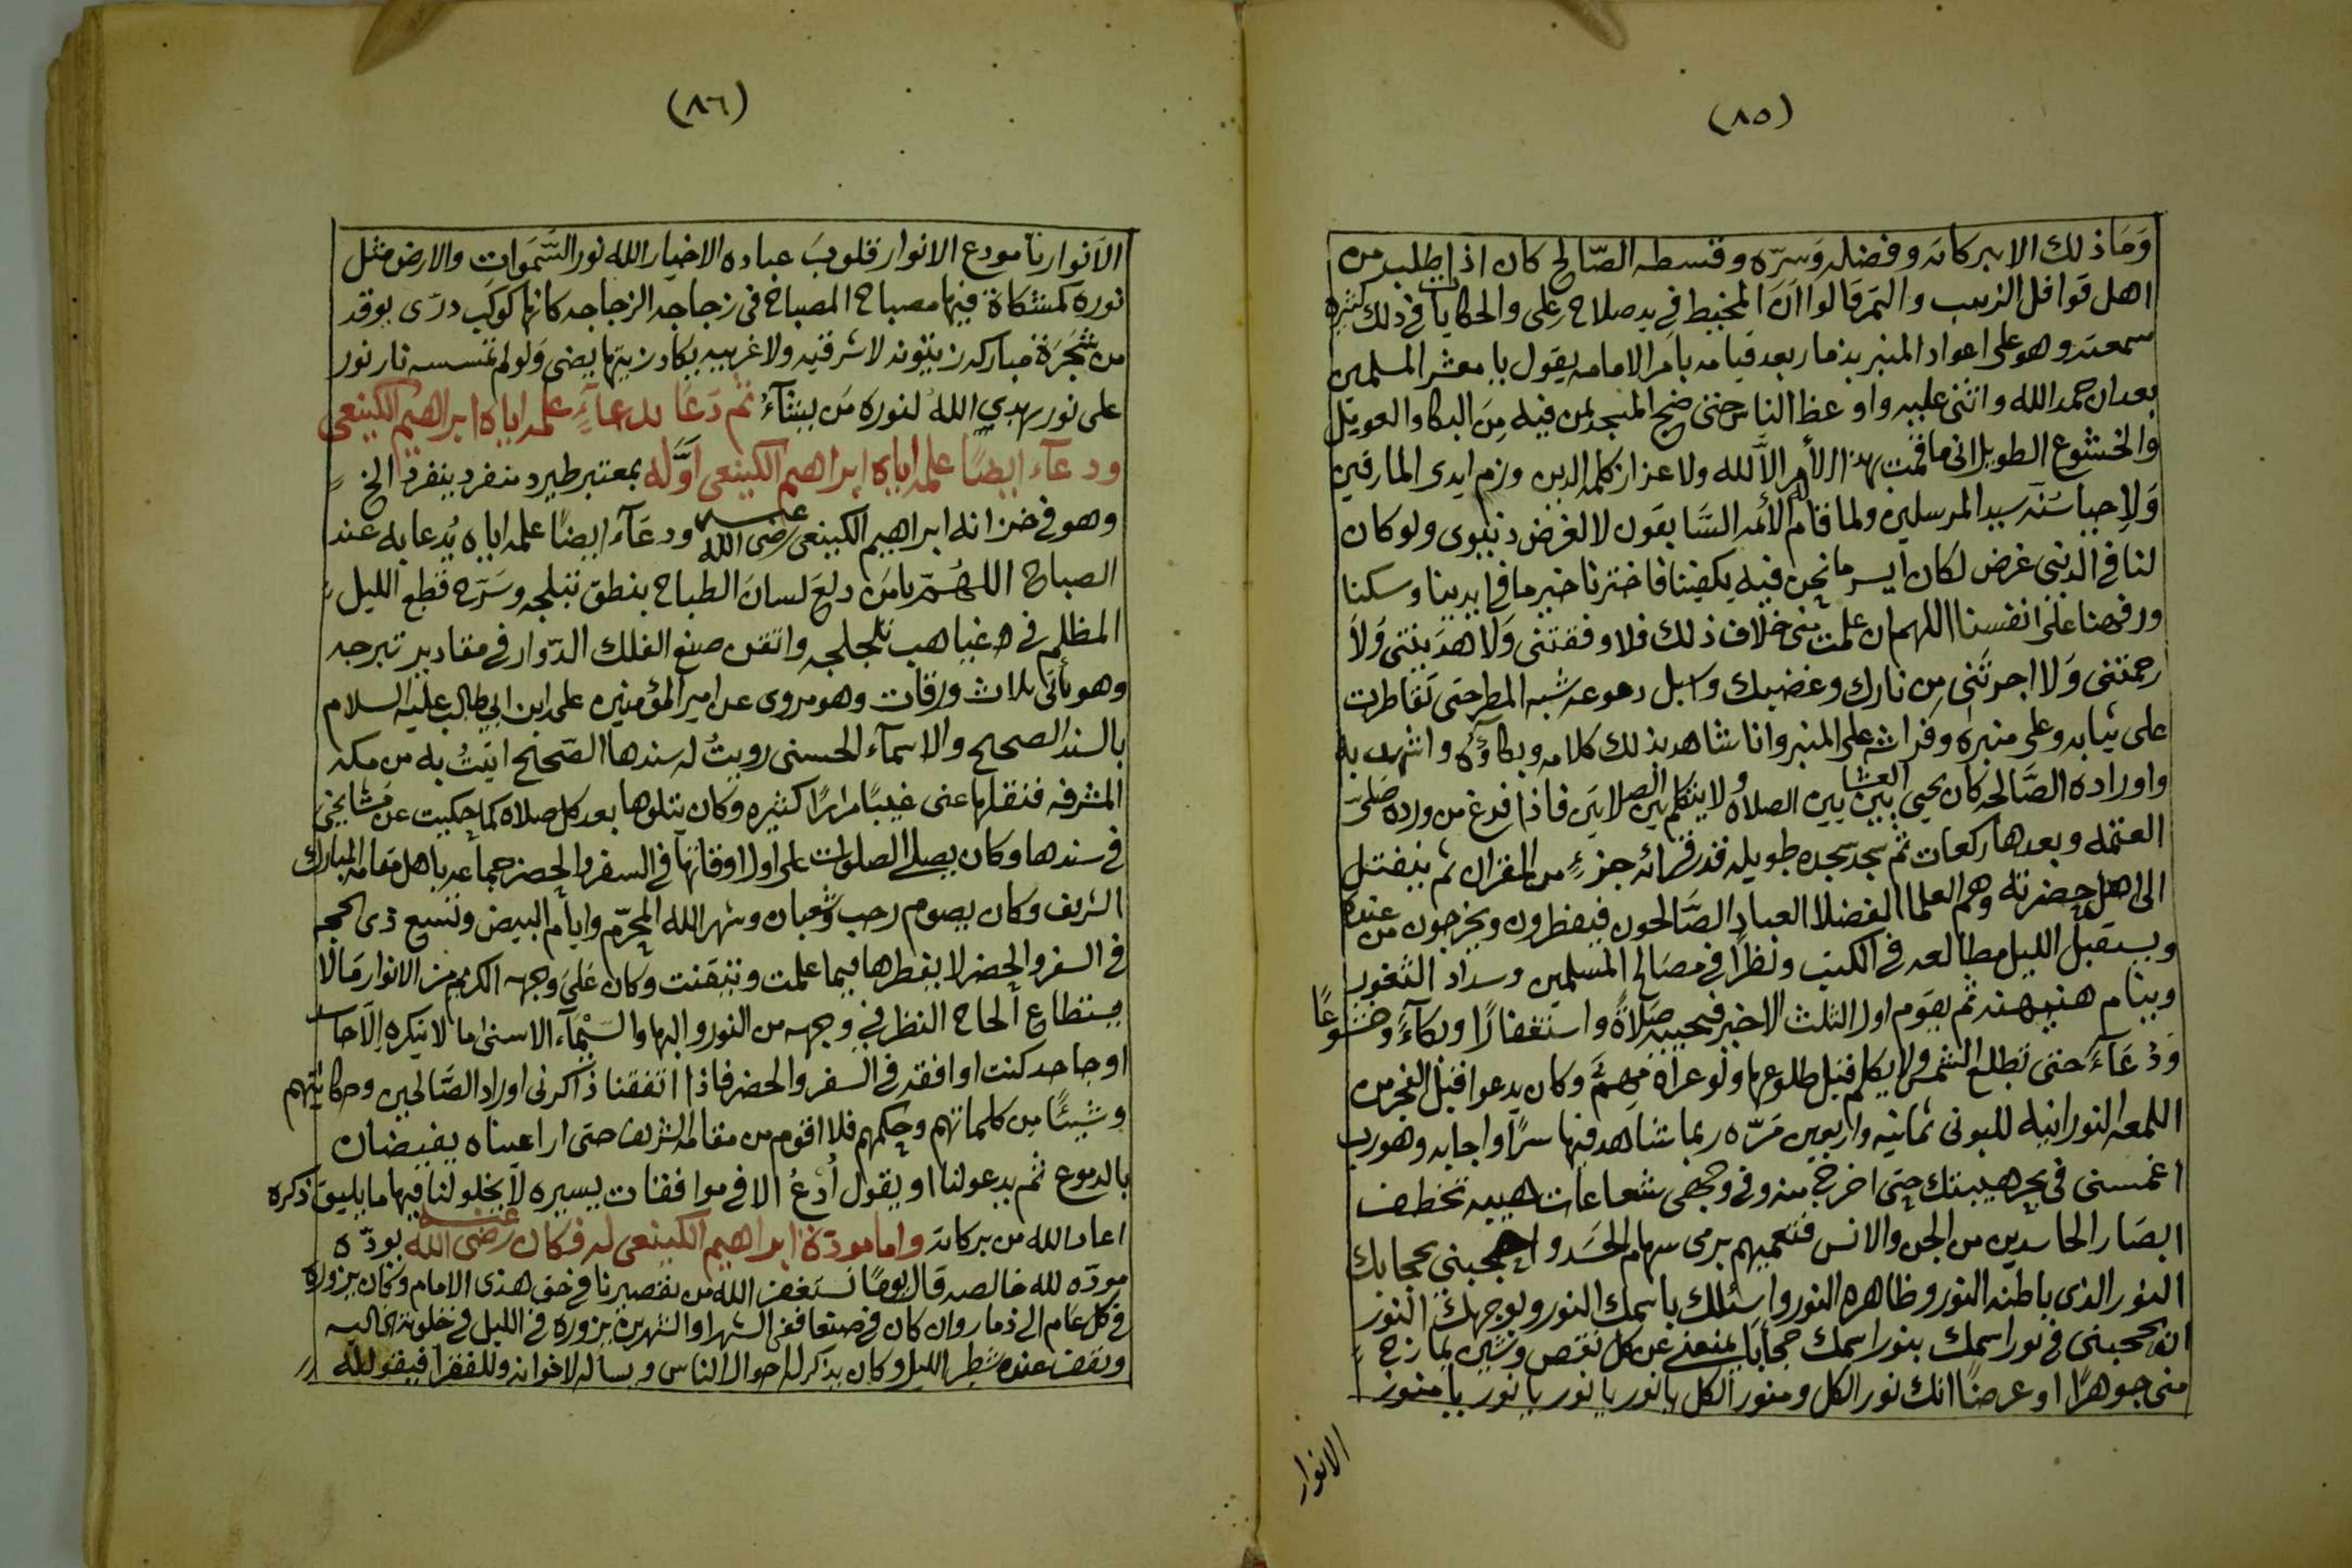 (٨٥)
وَمَا ذلك الا ببركاته وفضله وَسرّه وقسطه الصّالح كان اذا طلب من
اهل قوافل الزبيب والتمر قالوا انَّ المخيط في يد صلاح بن علي والحكايات في ذلك كثيره
سمعته وهو على اعواد المنبر بذمار بعد قيامه بامر الامامه يقول يا معشر المسلمين
بعد ان حمد الله واثنى عليه واوعظ الناس حتى ضج المسجد بمن فيه مِنَ البكا والعويل
والخشوع الطويل اني ما قمت بهذا الأمر الاَّ لله ولاعزاز كلمة الدين وزم ايدي المارقين
وَلاِحيا سُنة سيد المرسلين ولما قام له الأئمه السَّابقون لا لغرض دنيوي ولو كان
لنا في الدنيى غرض لكان أيسر ما نحن فيه يكفينا فاخترنا خير ما في ايدينا وسكنا
ورفهنا على انفسنا اللهم ان علمت مني خلاف ذلك فلا وفقتني وَلا هدَيتني وَلاَ
رحمتني وَلا اجرتَني مِن نارك وغضبك واسبل دموعه شبه المطر حتى تقاطرت
على ثيابه وعلى منبره وفراش على المنبر وانا شاهد بذلك كلامه وبكاؤُه واشهد به
واوراده الصَّالحه كان يحيي بين العشائين الصلاه ولا يتكلم بين الصلاتين فاذا فرغ من ورده صَلىّ
العتمه وبعدها ركعات ثم سجد سجده طويله قدر قرائه جزءٍ من القران ثم ينفتل
الى اهل حضرته وهم العلما الفضلا العباد الصَّالحون فيفطرون ويخرجون من عنده
ويستقبل الليل مطالعه في الكتب ونظرًا في مصَالح المسلمين وسداد الثغور
وينام هنيهنه ثم يقوم اول الثلث الاخير فيحييه صَلاةً واستغفارًا وبكآءً وخشوعًا
وَدُعَآءً حتى تطلع الشمس ولا يكلم قبل طلوعها ولو عراه مُهمٌّ وكان يدعو قبل الفجر من
اللمعه النورانيه للبوني ثمانيه واربعين مَرّه ربما شاهد فيها سرًا واجابه وهو رب
اغمسني في بحر هيبتك حتى اخرج منه وفي وجهي شعاعات هيبه تخطف
ابصَار الحاسدين من الجن والانس فتعميهم برمي سهام الحَسَد واحجبني بحجابك
النور الذي باطنه النور وظاهره النور واسئلك باسمك النور وبوجهك النور
ان تحجبني في نور اسمك بنور اسمك حجابًا يمنعني عن كل نقص وشين يمازج
مني جوهرًا او عرضًا انك نور الكل ومنور الكل يا نور يا نور يا نور يا منور
الانوار
(٨٦)
الاَنوار يا مودع الانوار قلوبَ عباده الاخيار الله نور السَّمَوات والارض مثل
نوره كمشكاة فيها مصباح المصباح في زجاجه الزجاجه كانها كوكب درّى يوقد
من شَجَرَة مباركه زيتونه لا شرقيه ولا غربيه يكاد زيتها يضى وَلو لم تمسسه نار نور
على نور يهدي اللهُ لنوره مَن يشآءُ ثم دَعَا بدعآءٍ علمه اياه ابراهيم الكينعي
ودعآء ايضًا علمه اياه ابراهيم الكينعي اوّله بمعتبر طير دمنفرد ينفرد الخ
وهو في خزانه ابراهيم الكينعي رضى الله عنـه ودعَآء ايضًا علمه اياه يُدعا به عند
الصباح اللهُمّ يامَن دلعَ لسانَ الطباح بنطق تبلجه وسَرّح قطع الليل
المظلم في غياهب تلجلجه واتقن صنع الفلك الدّوار في مقادير تبرجه
وهو يأتي بثلاث ورقات وهو مروى عن امير المؤمنين على ابن ابي طالب عليه السلام
بالسند الصحيح والاسمآء الحسنى رويتُ له سندها الصّحيح اتيتُ به من مكه
المشرفه فنقلها عني غيبًا مرارًا كثيره وكان يتلوها بعد كل صلاه كما حكيت عن مشايخي
في سندها وكان يصلي الصلوات على اول اوقاتها في السفر والحضر جماعه باهل مقامه المبارك
الشريف وكان يصوم رجب وشعبان وشهر الله المحرّم وايام البيض وتسع ذى الحجه
في السفر والحضر لا يفطرها فيما علمت وتيقنت وكان عَلى وجهه الكريم من الانوار مَا لا
يستطاع الحاح النظر في وجهه من النور والبها والسيْمآء الاسنى ما لا ينكره إلاّ حاسد
او جاحد كنت اوافقه في السفر والحضر فاذا اتفقنا ذاكرني اوراد الصَّالحين وحكايتهم
وشيئًا مِن كلماتهم وحكمهم فلا اقوم من مقامه الشريف حتى ارا عيناه يفيضان
بالدموع ثم يدعو لنا او يقول اُدعُ الا في موافقات يسيره لا يخلو لنا فيها ما يليق ذكره
اعاد الله من بركاته واما مودّة ابراهيم الكينعي له فكان رضى الله عنـه يودّه
مودّه لله خالصه قال يومًا نستغفر الله من تقصيرنا في حق هذى الامام وكان يزوره
في كل عَام الى ذمار وان كان في صنعا ففي الشهر او الشهرين يزوره في الليل في خلوته الخاليه
ويقف عنده شطر الليل وكان يذكر له احوال الناس ويسأله لاخوانه وللفقرا فيقول لله